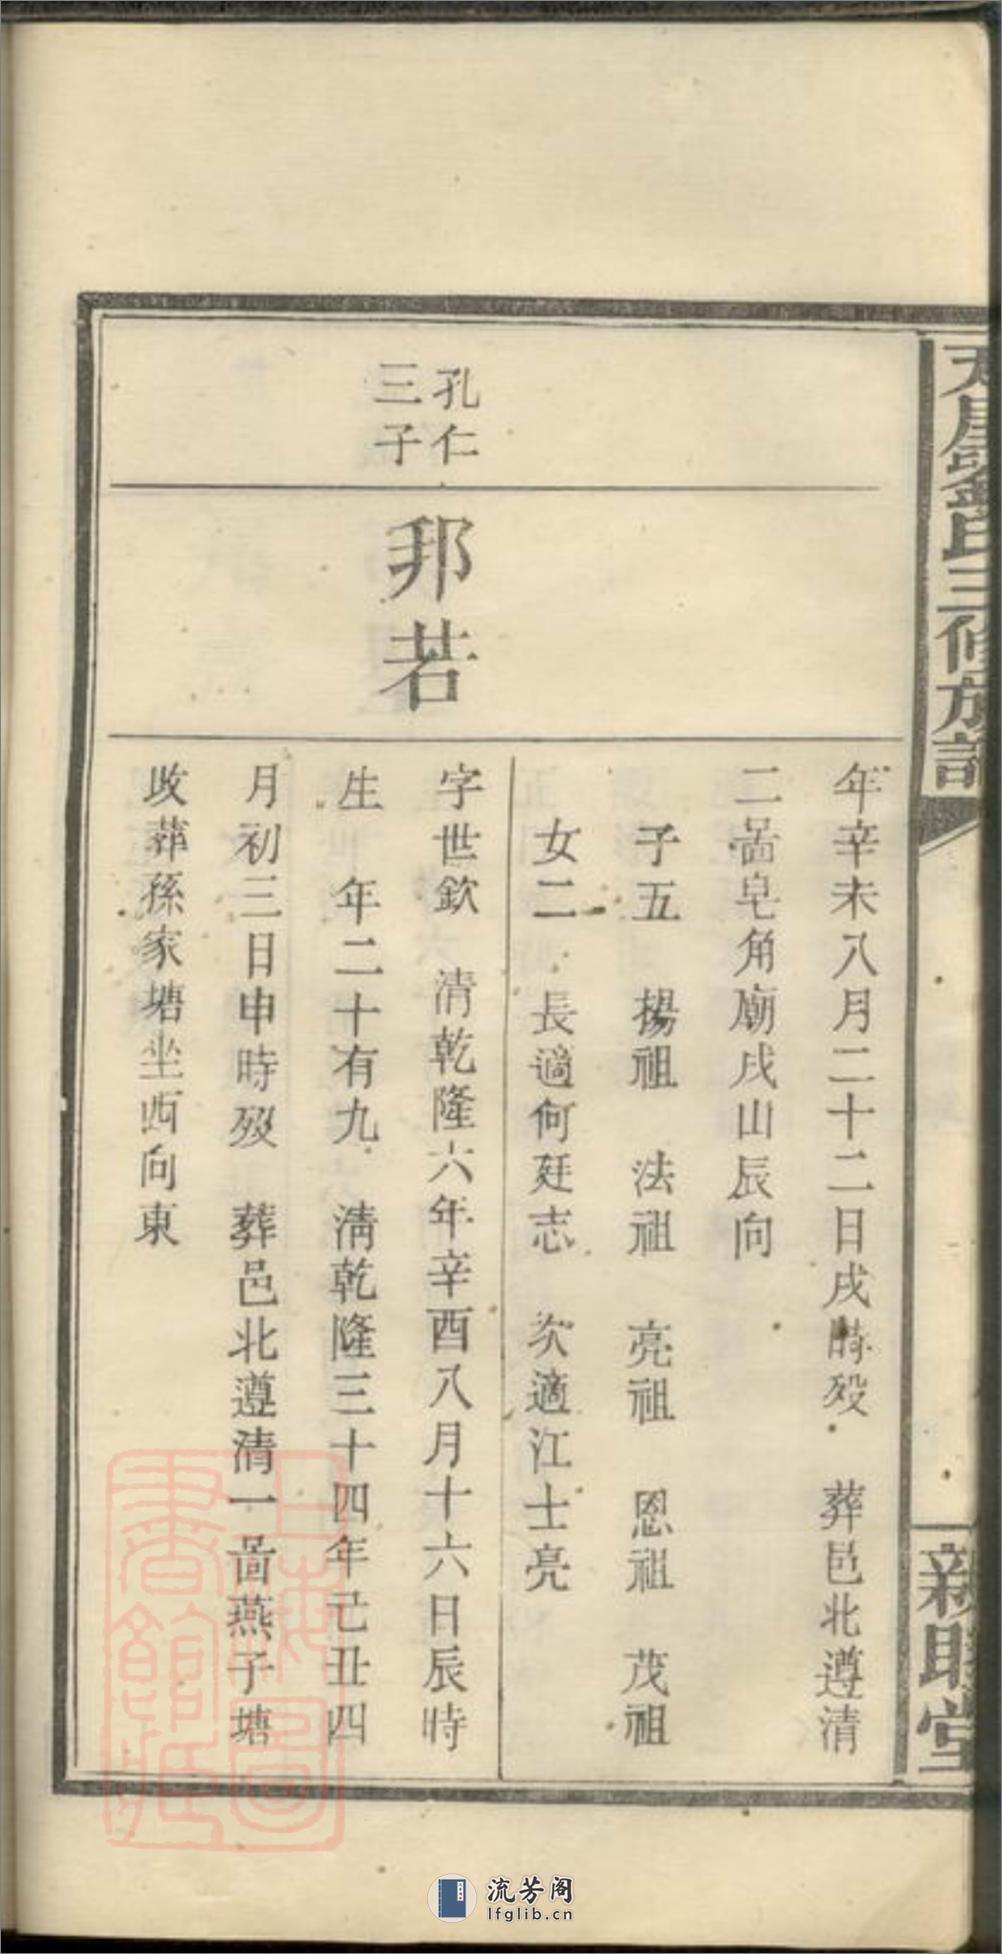 三修族譜
新
堂
年辛未八月二十二日戌時歿　葬邑北遵清
二啚皂角廟戌山辰向
子五　揚祖　法祖　亮祖　恩祖　茂祖
女二　長適何廷志　次適江士亮
孔仁
三子
邦若
字世欽　清乾隆六年辛酉八月十六日辰時
生　年二十有九　清乾隆三十四年己丑四
月初三日申時歿　葬邑北遵清一啚燕子塘
改葬孫家塘坐西向東
上海圖
書館藏
流芳阁
lfglib.cn